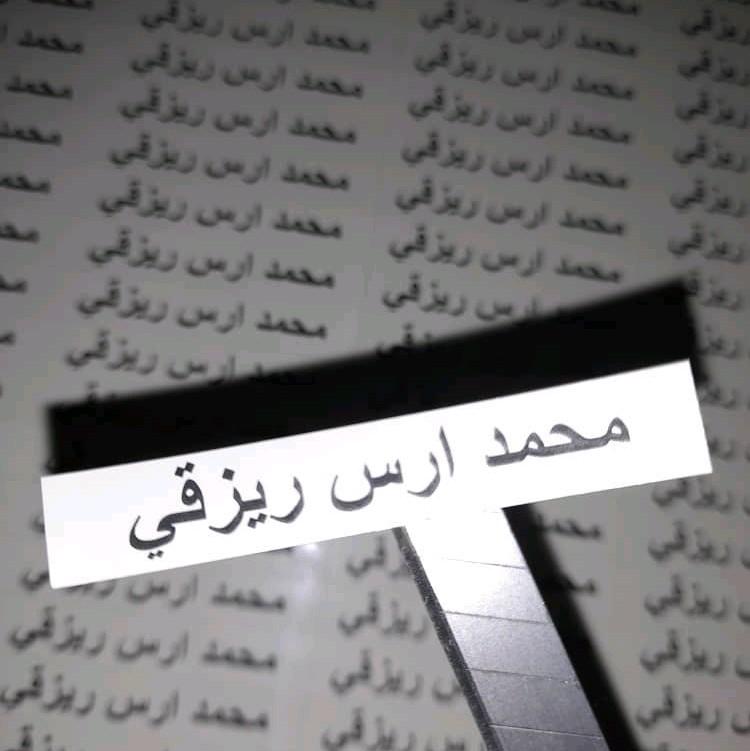 محمد ارس ريزقي